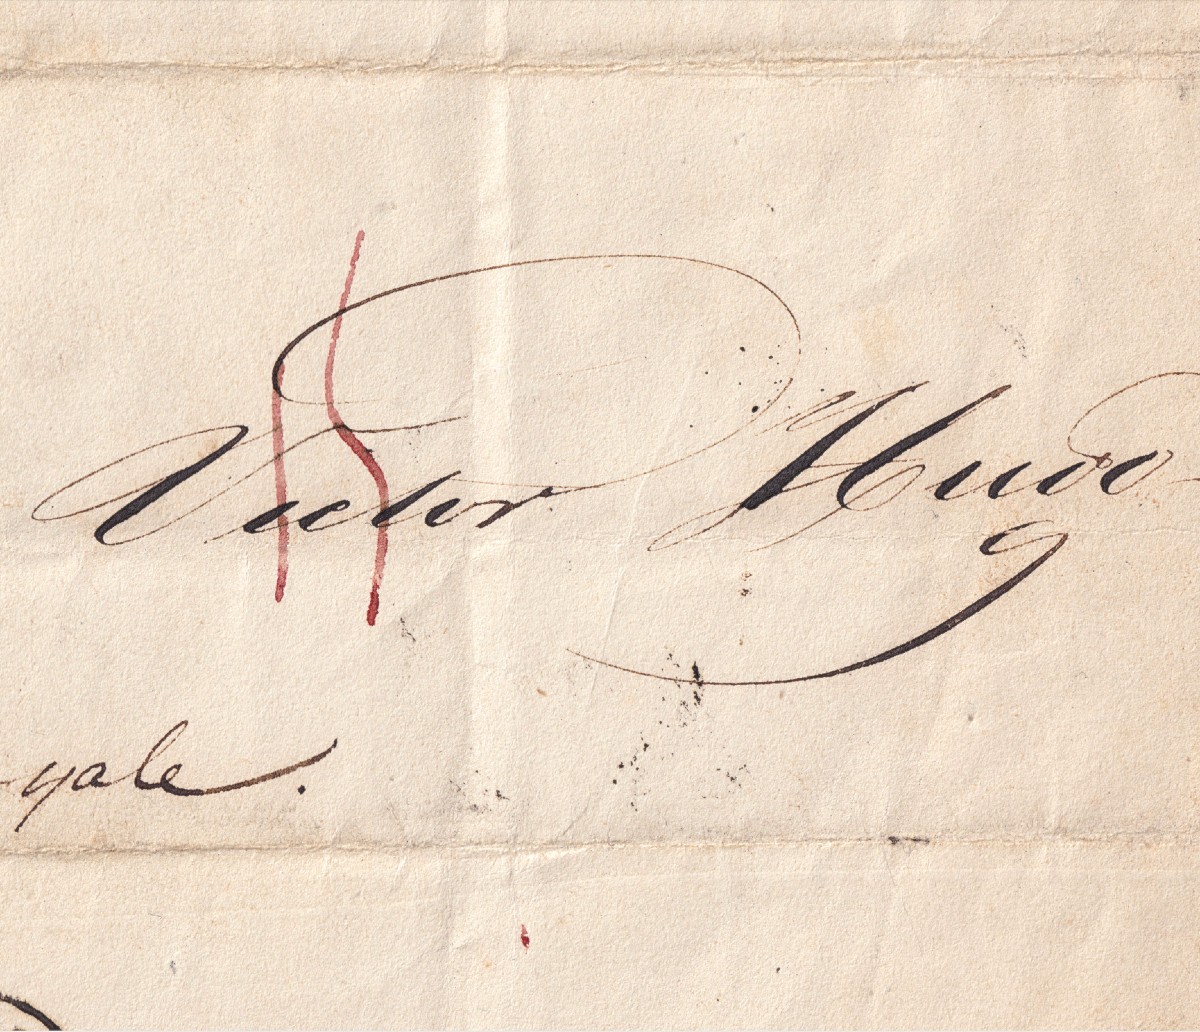 Victor Hugo
yale.